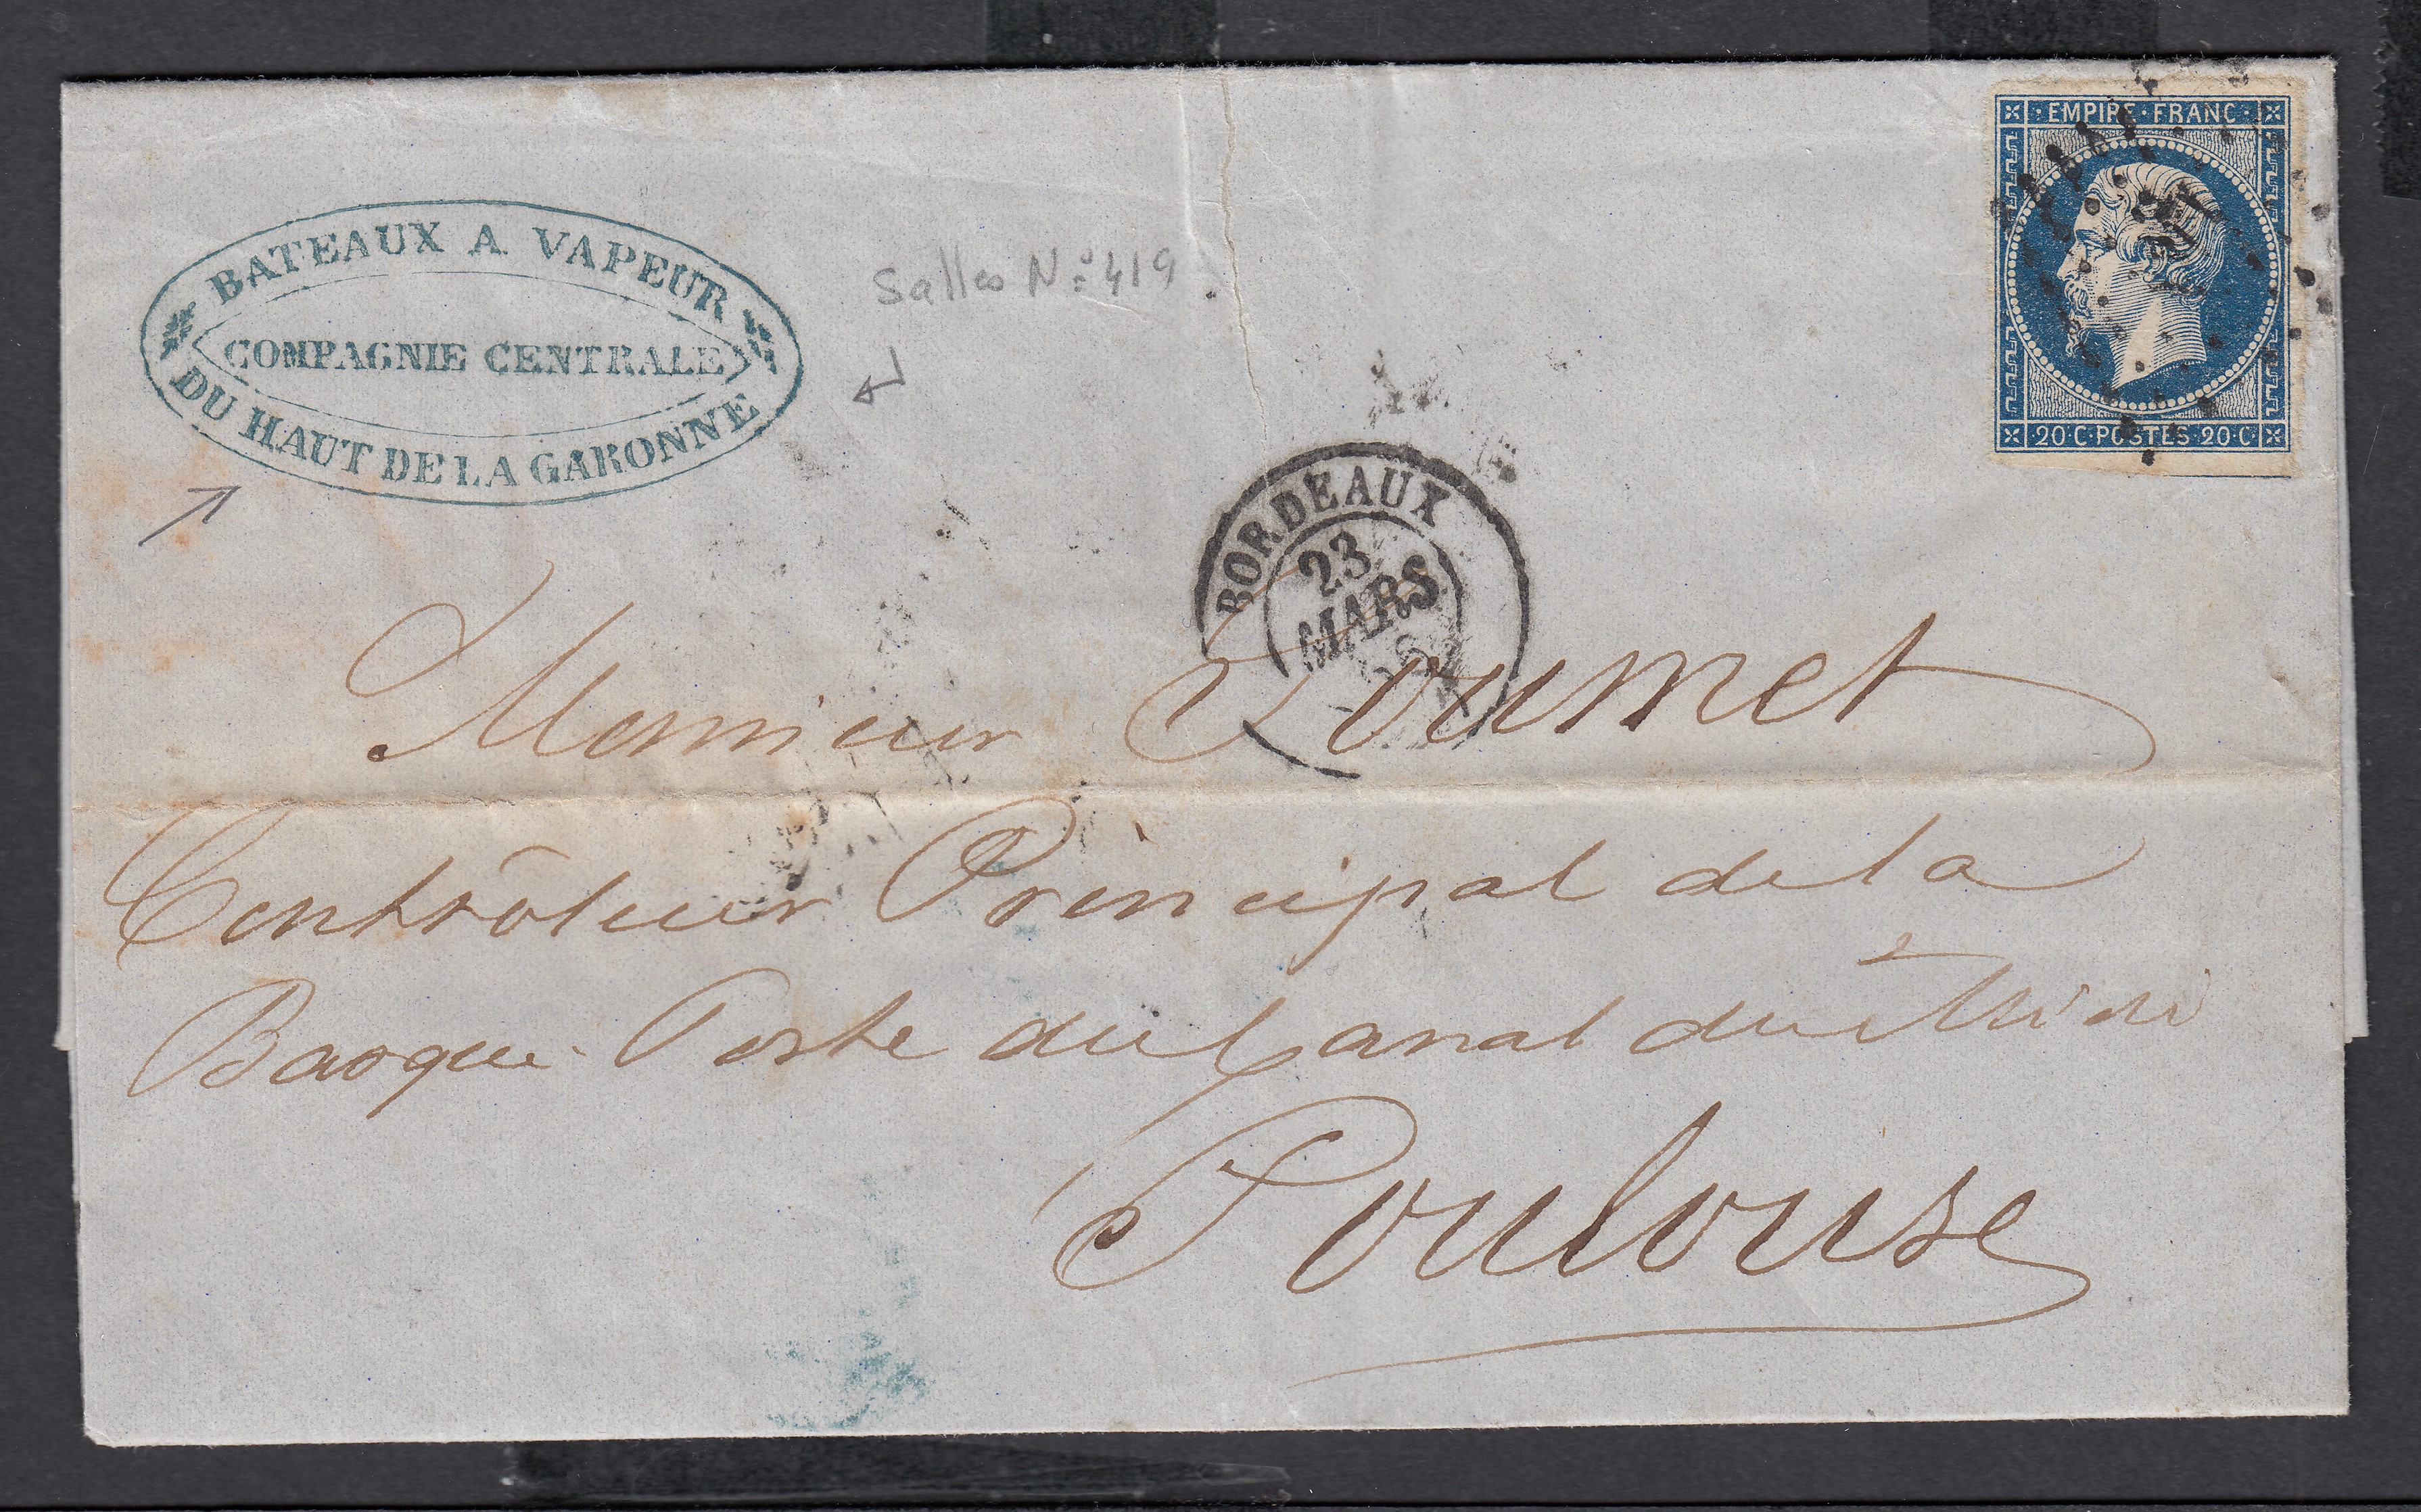 BATEAUX A VAPEUR
COMPAGNIE CENTRALE
DU HAUT DE LA GARONNE
Salles N:° 419
EMPIRE·FRANC·
20·C·POSTES·20·C
BORDEAUX
23
MARS
Monsieur Toumet
Contrôleur Principal de la
Barque-Poste du Canal du Midi
Toulouse